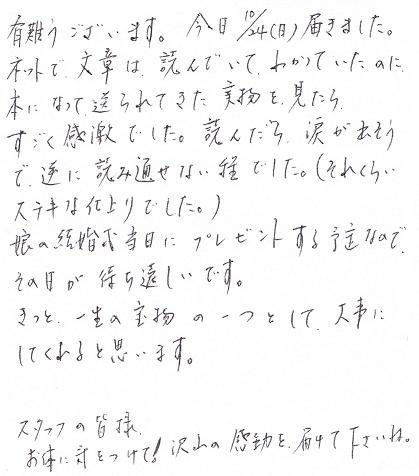 有難うございます。今日10/24(日)届きました。
ネットで文章は、読んでいて、わかっていたのに、
本になって送られてきた実物を見たら、
すごく感激でした。読んだら、涙が出そう
で、逆に読み通せない程でした。(それくらい
ステキな仕上りでした。)
娘の結婚式当日にプレゼントする予定なので、
その日が待ち遠しいです。
きっと、一生の宝物の一つとして、大事に
してくれると思います。
スタッフの皆様、
お体に気をつけて!沢山の感動を、届けて下さいね。